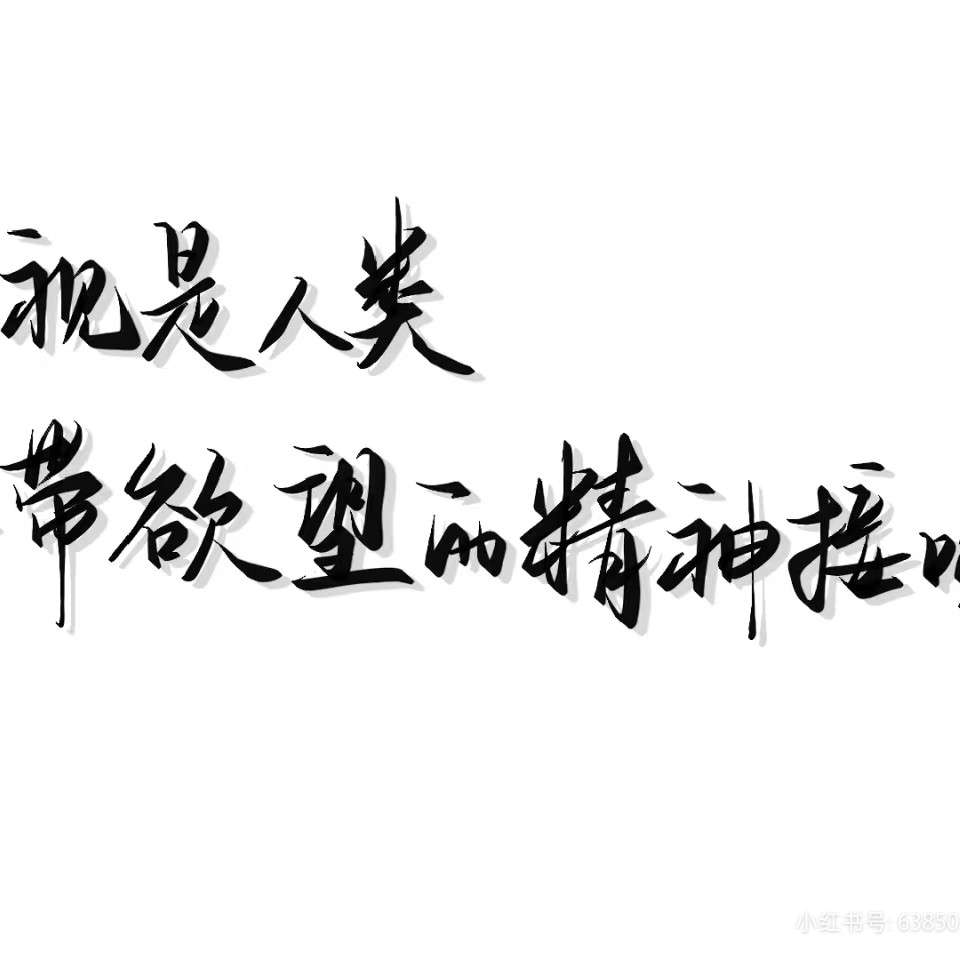 视是人类
带欲望的精神接
小红书号: 63850